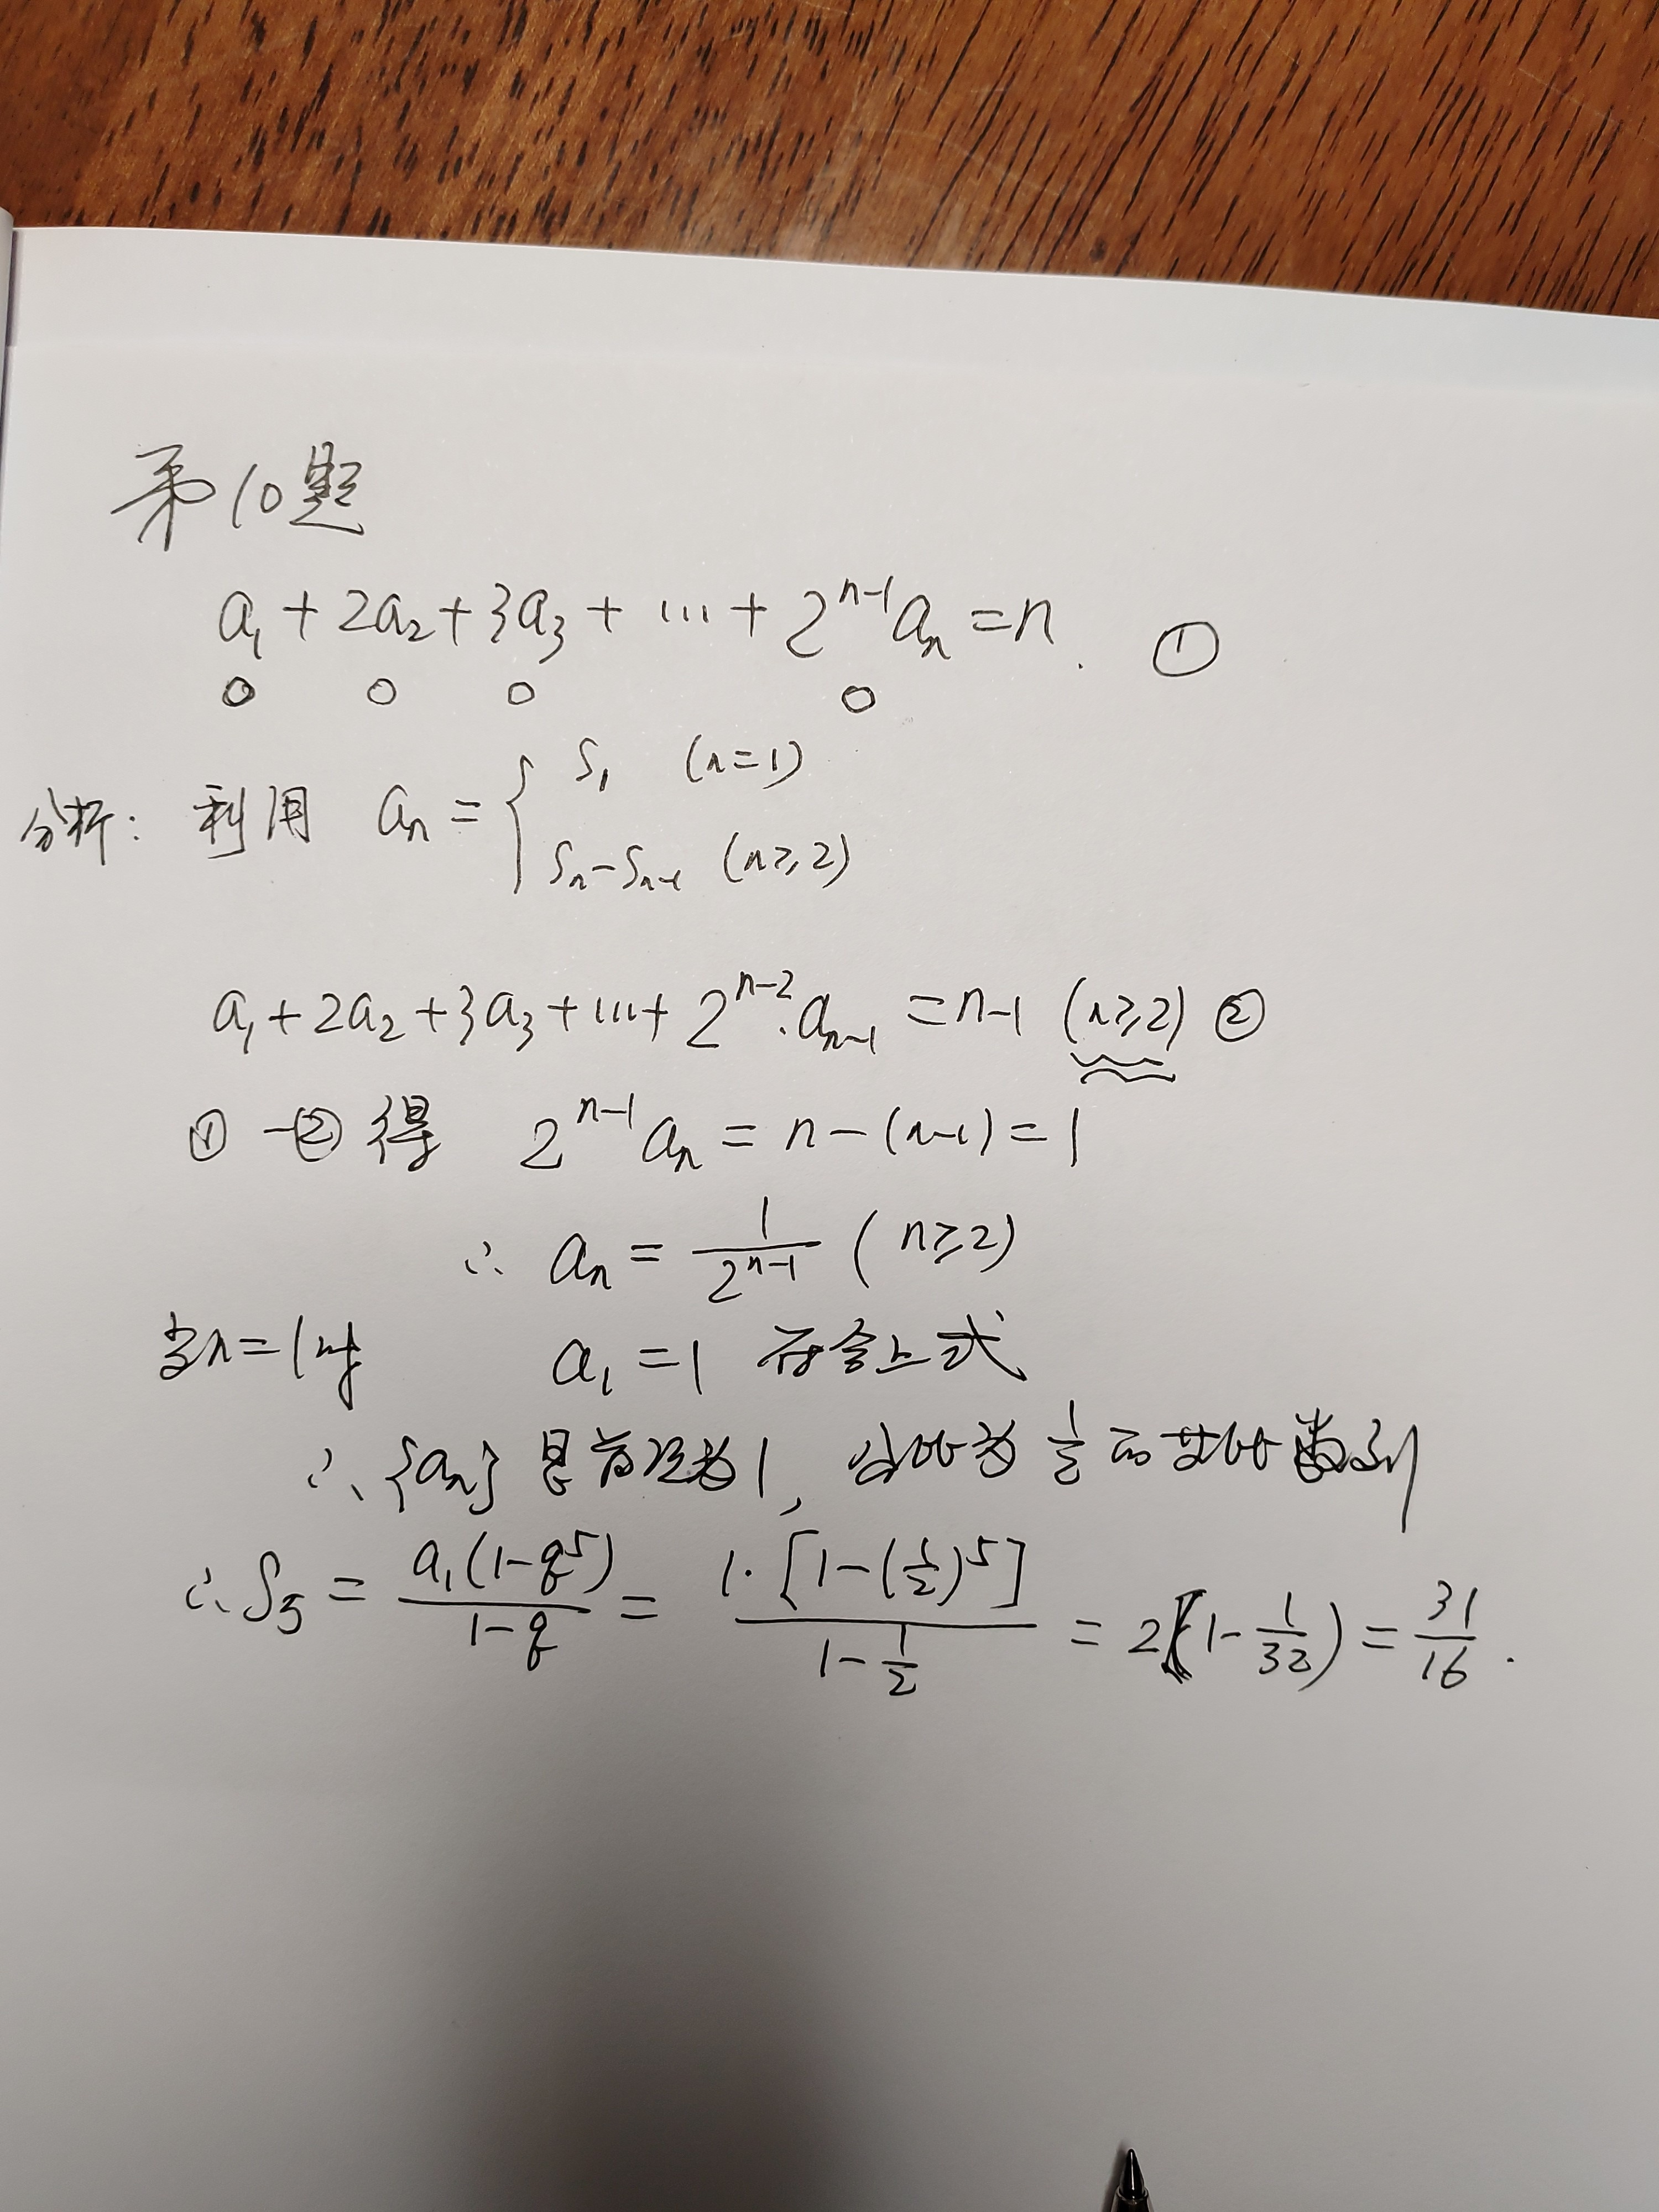 第10题
a₁+2a₂+3a₃+…+2ⁿ⁻¹aₙ=n. ①
分析: 利用 aₙ={ S₁ (n=1)
Sₙ-Sₙ₋₁ (n≥2)
a₁+2a₂+3a₃+…+2ⁿ⁻²·aₙ₋₁=n-1 (n≥2) ②
①-②得 2ⁿ⁻¹aₙ=n-(n-1)=1
∴ aₙ=1/2ⁿ⁻¹ (n≥2)
当n=1时 a₁=1 符合上式
∴{aₙ}是首项为1, 公比为1/2的等比数列
∴S₅=a₁(1-q⁵)/(1-q)=1·[1-(1/2)⁵]/(1-1/2)=2(1-1/32)=31/16.